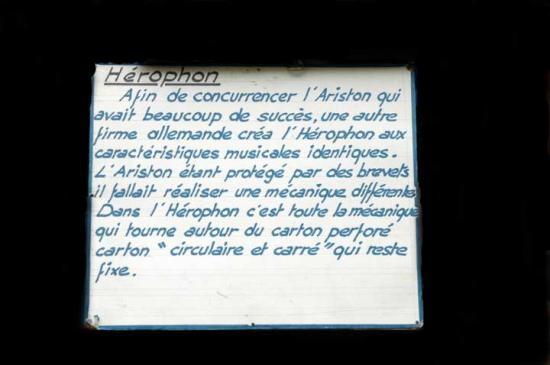 Hérophon
Afin de concurrencer l'Ariston qui
avait beaucoup de succès, une autre
firme allemande créa l'Hérophon aux
caractéristiques musicales identiques.
L'Ariston étant protégé par des brevets
il fallait réaliser une mécanique différente
Dans l'Hérophon c'est toute la mécanique
qui tourne autour du carton perforé
carton "circulaire et carré" qui reste
fixe.